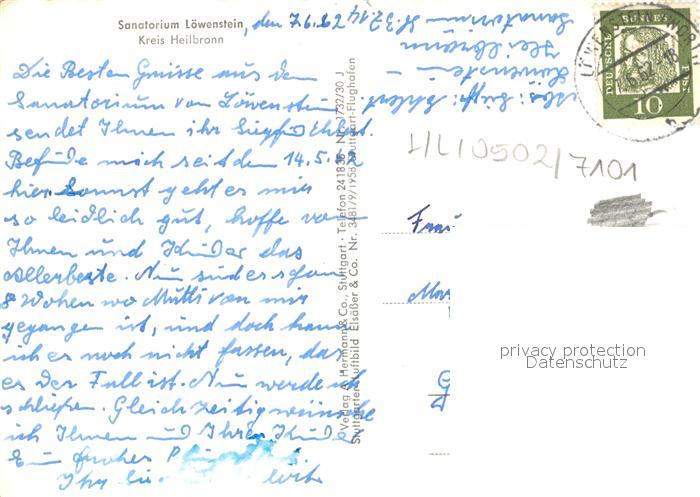 Sanatorium Löwenstein, den 7.6.62
Kreis Heilbronn
Die Besten Grüsse aus dem
Sanatorium von Löwenstein
sendet Ihnen ihr
Befinde mich seit dem 14.5.62
hier. Sonnst geht es mir
so leidlich gut, hoffe von
Ihnen und Kinder das
Allerbeste. Nun sind es schon
8 Wochen wo Mutti von mir
gegangen ist, und doch kann
ich es noch nicht fassen, das
es der Fall ist. Nun werde ich
schließen. Gleichzeitig wünsche
ich Ihnen und Ihren Kinder
Ein frohes
Ihr
Abs:
Löwenstein
Heilbronn
Sanatorium
Verlag A. Hermann & Co., Stuttgart · Telefon 241838
Stuttgarter Luftbild Elsäßer & Co. Nr. 3481/9/1958
DEUTSCHE BUNDESPOST
10
L/L10502/7101
Frau
privacy protection
Datenschutz